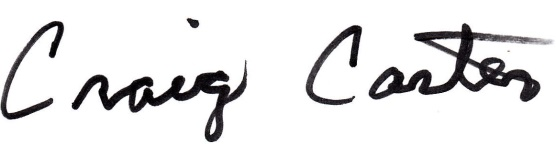 Craig Carter